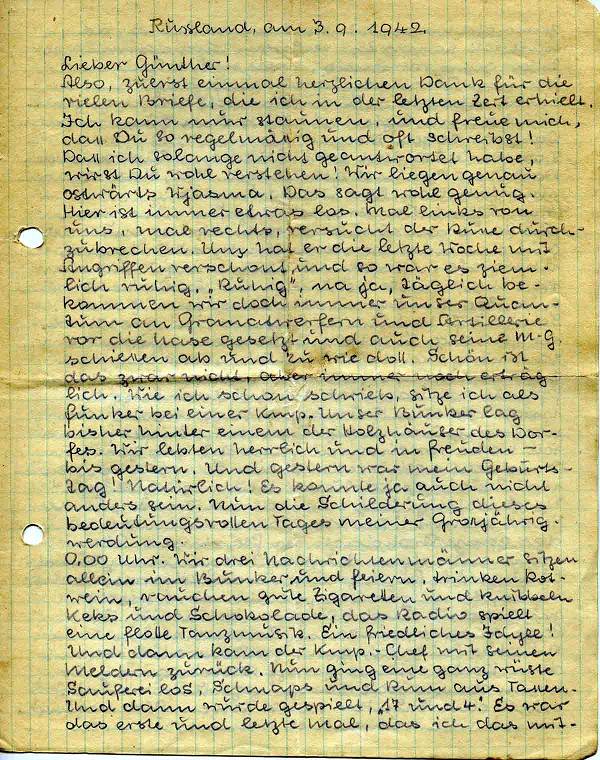 Russland, am 3.9.1942.
Lieber Günther!
Also, zuerst einmal herzlichen Dank für die
vielen Briefe, die ich in der letzten Zeit erhielt.
Ich kann nur staunen, und freue mich,
daß Du so regelmäßig und oft schreibst!
Daß ich solange nicht geantwortet habe,
wirst Du wohl verstehen! Wir liegen genau
ostwärts Wjasma. Das sagt wohl genug.
Hier ist immer etwas los. Mal links von
uns, mal rechts, versucht der Russe durch-
zubrechen. Uns hat er die letzte Woche mit
Angriffen verschont, und so war es ziem-
lich ruhig. „Ruhig", na ja, täglich be-
kommen wir doch immer unser Quan-
tum an Granatwerfern und Artillerie
vor die Nase gesetzt und auch seine M.G.
schießen ab und zu wie doll. Schön ist
das zwar nicht, aber immer noch erträg
lich. Wie ich schon schrieb, sitze ich als
Funker bei einer Kmp. Unser Bunker lag
bisher hinter einem der Holzhäuser des Dor-
fes. Wir lebten herrlich und in Freuden –
bis gestern. Und gestern war mein Geburts-
tag! Natürlich! Es konnte ja auch nicht
anders sein. Nun die Schilderung dieses
bedeutungsvollen Tages meiner Großjährig-
werdung.
0.00 Uhr. Wir drei Nachrichtenmänner sitzen
allein im Bunker und feiern, trinken Rot-
wein, rauchen gute Zigaretten und knibbeln
Keks und Schokolade, das Radio spielt
eine flotte Tanzmusik. Ein friedliches Idyll!
Und dann kam der Kmp.-Chef mit seinen
Meldern zurück. Nun ging eine ganz wüste
Sauferei los, Schnaps und Rum aus Tassen.
Und dann wurde gespielt, „17 und 4". Es war
das erste und letzte Mal, das ich das mit-